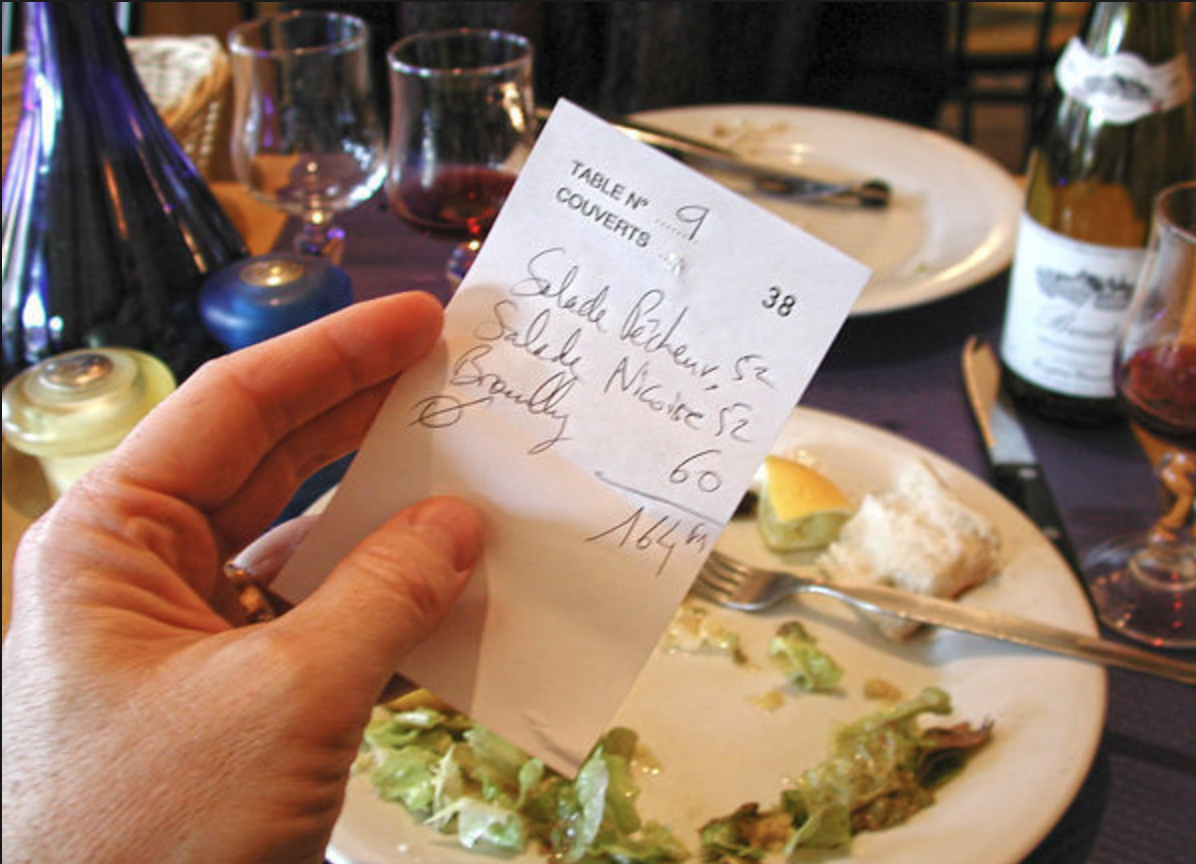 TABLE N° 9
COUVERTS
38
Salade Pêcheur, 52
Salade Nicoise 52
Brouilly
60
164